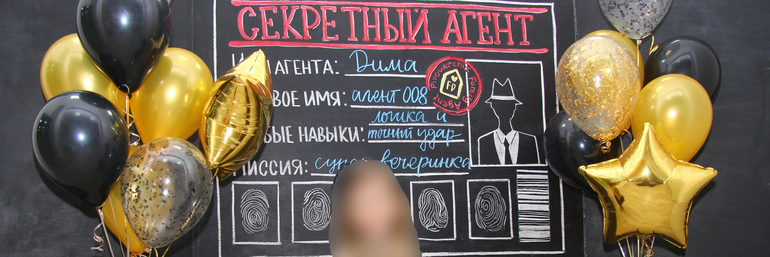 СЕКРЕТНЫЙ АГЕНТ
АГЕНТА: Дима
ВОЕ ИМЯ: агент 008
логика и
ЫЕ НАВЫКИ: точный удар
МИССИЯ: супер вечеринка